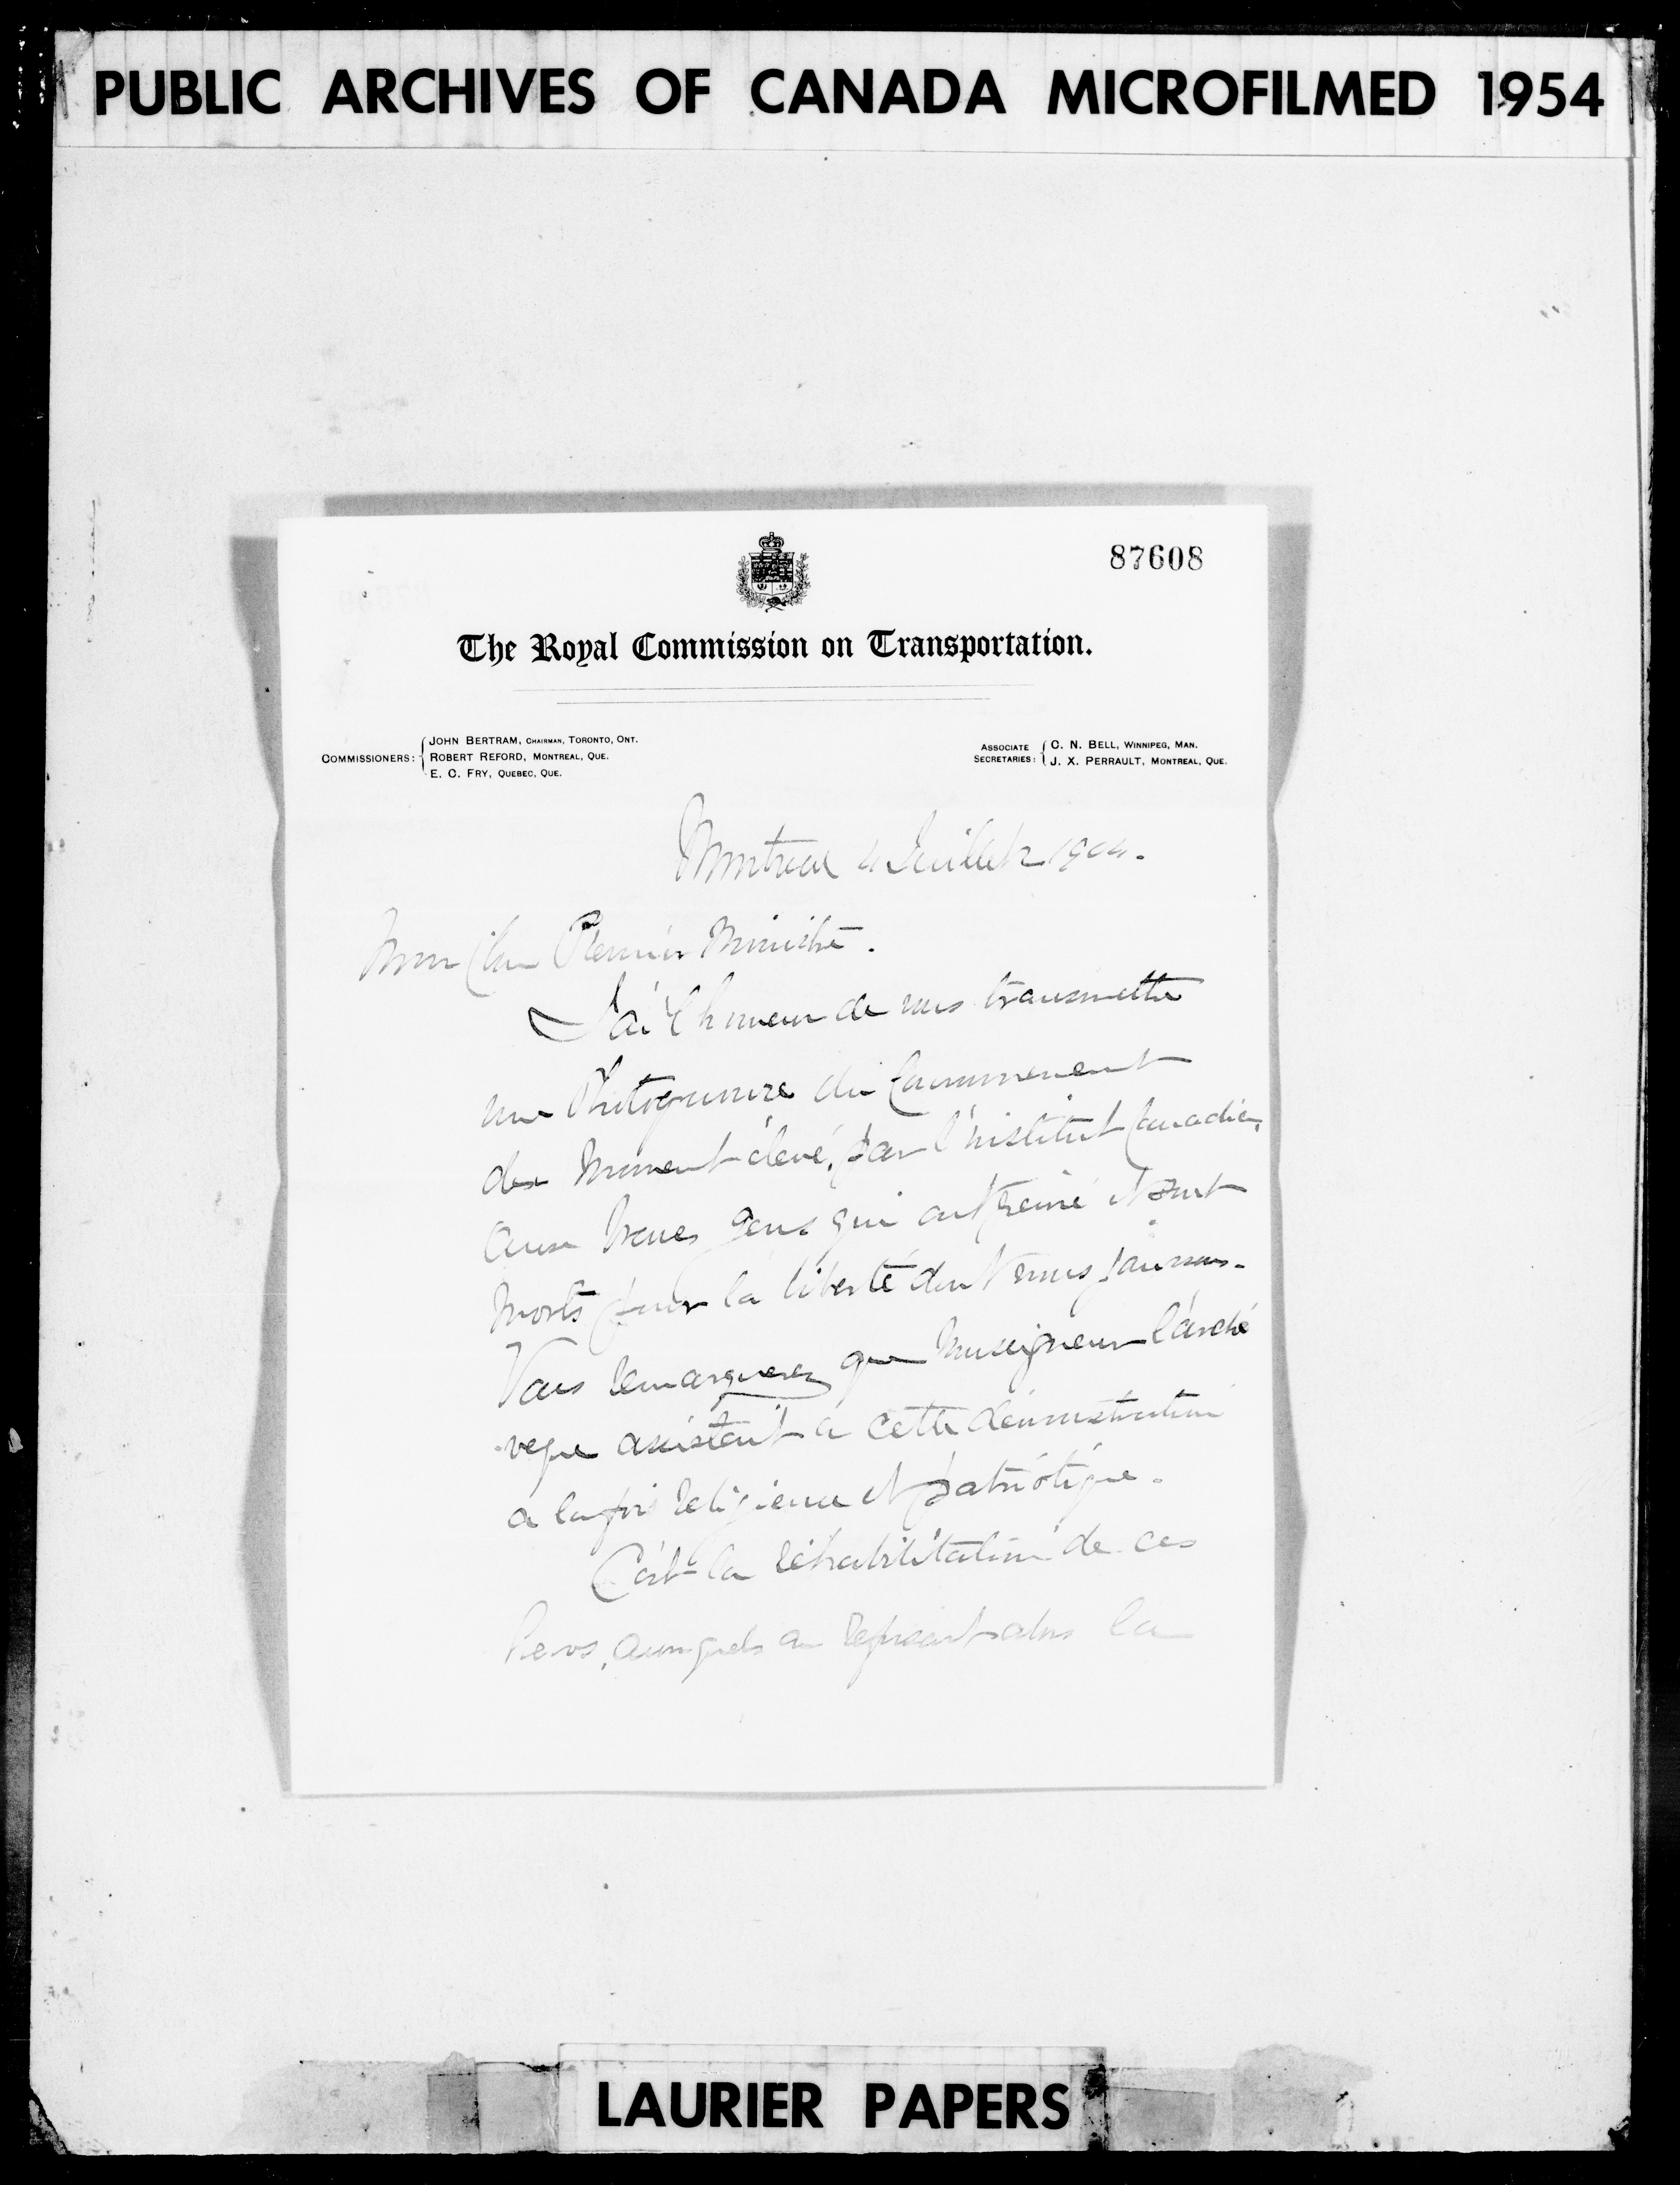 PUBLIC ARCHIVES OF CANADA MICROFILMED 1954
87608
The Royal Commission on Transportation.
COMMISSIONERS: JOHN BERTRAM, CHAIRMAN, TORONTO, ONT.
ROBERT REFORD, MONTREAL, QUE.
E. C. FRY, QUEBEC, QUE.
ASSOCIATE SECRETARIES: C. N. BELL, WINNIPEG, MAN.
J. X. PERRAULT, MONTREAL, QUE.
Montreal 4 Juillet 1904.
Mon cher Premier Ministre.
J'ai l'honneur de vous transmettre
une Photogravure du Couronnement
du Monument élevé, par l'institut Canadien,
aux braves gens qui ont peiné et sont
morts pour la liberté dont nous jouissons.
Vous remarquerez que Monseigneur l'arche
veque assistait à cette démonstration
a la fois religieuse et patriotique.
C'est la réhabilitation de ces
heros, auxquels on refusait alors la
LAURIER PAPERS